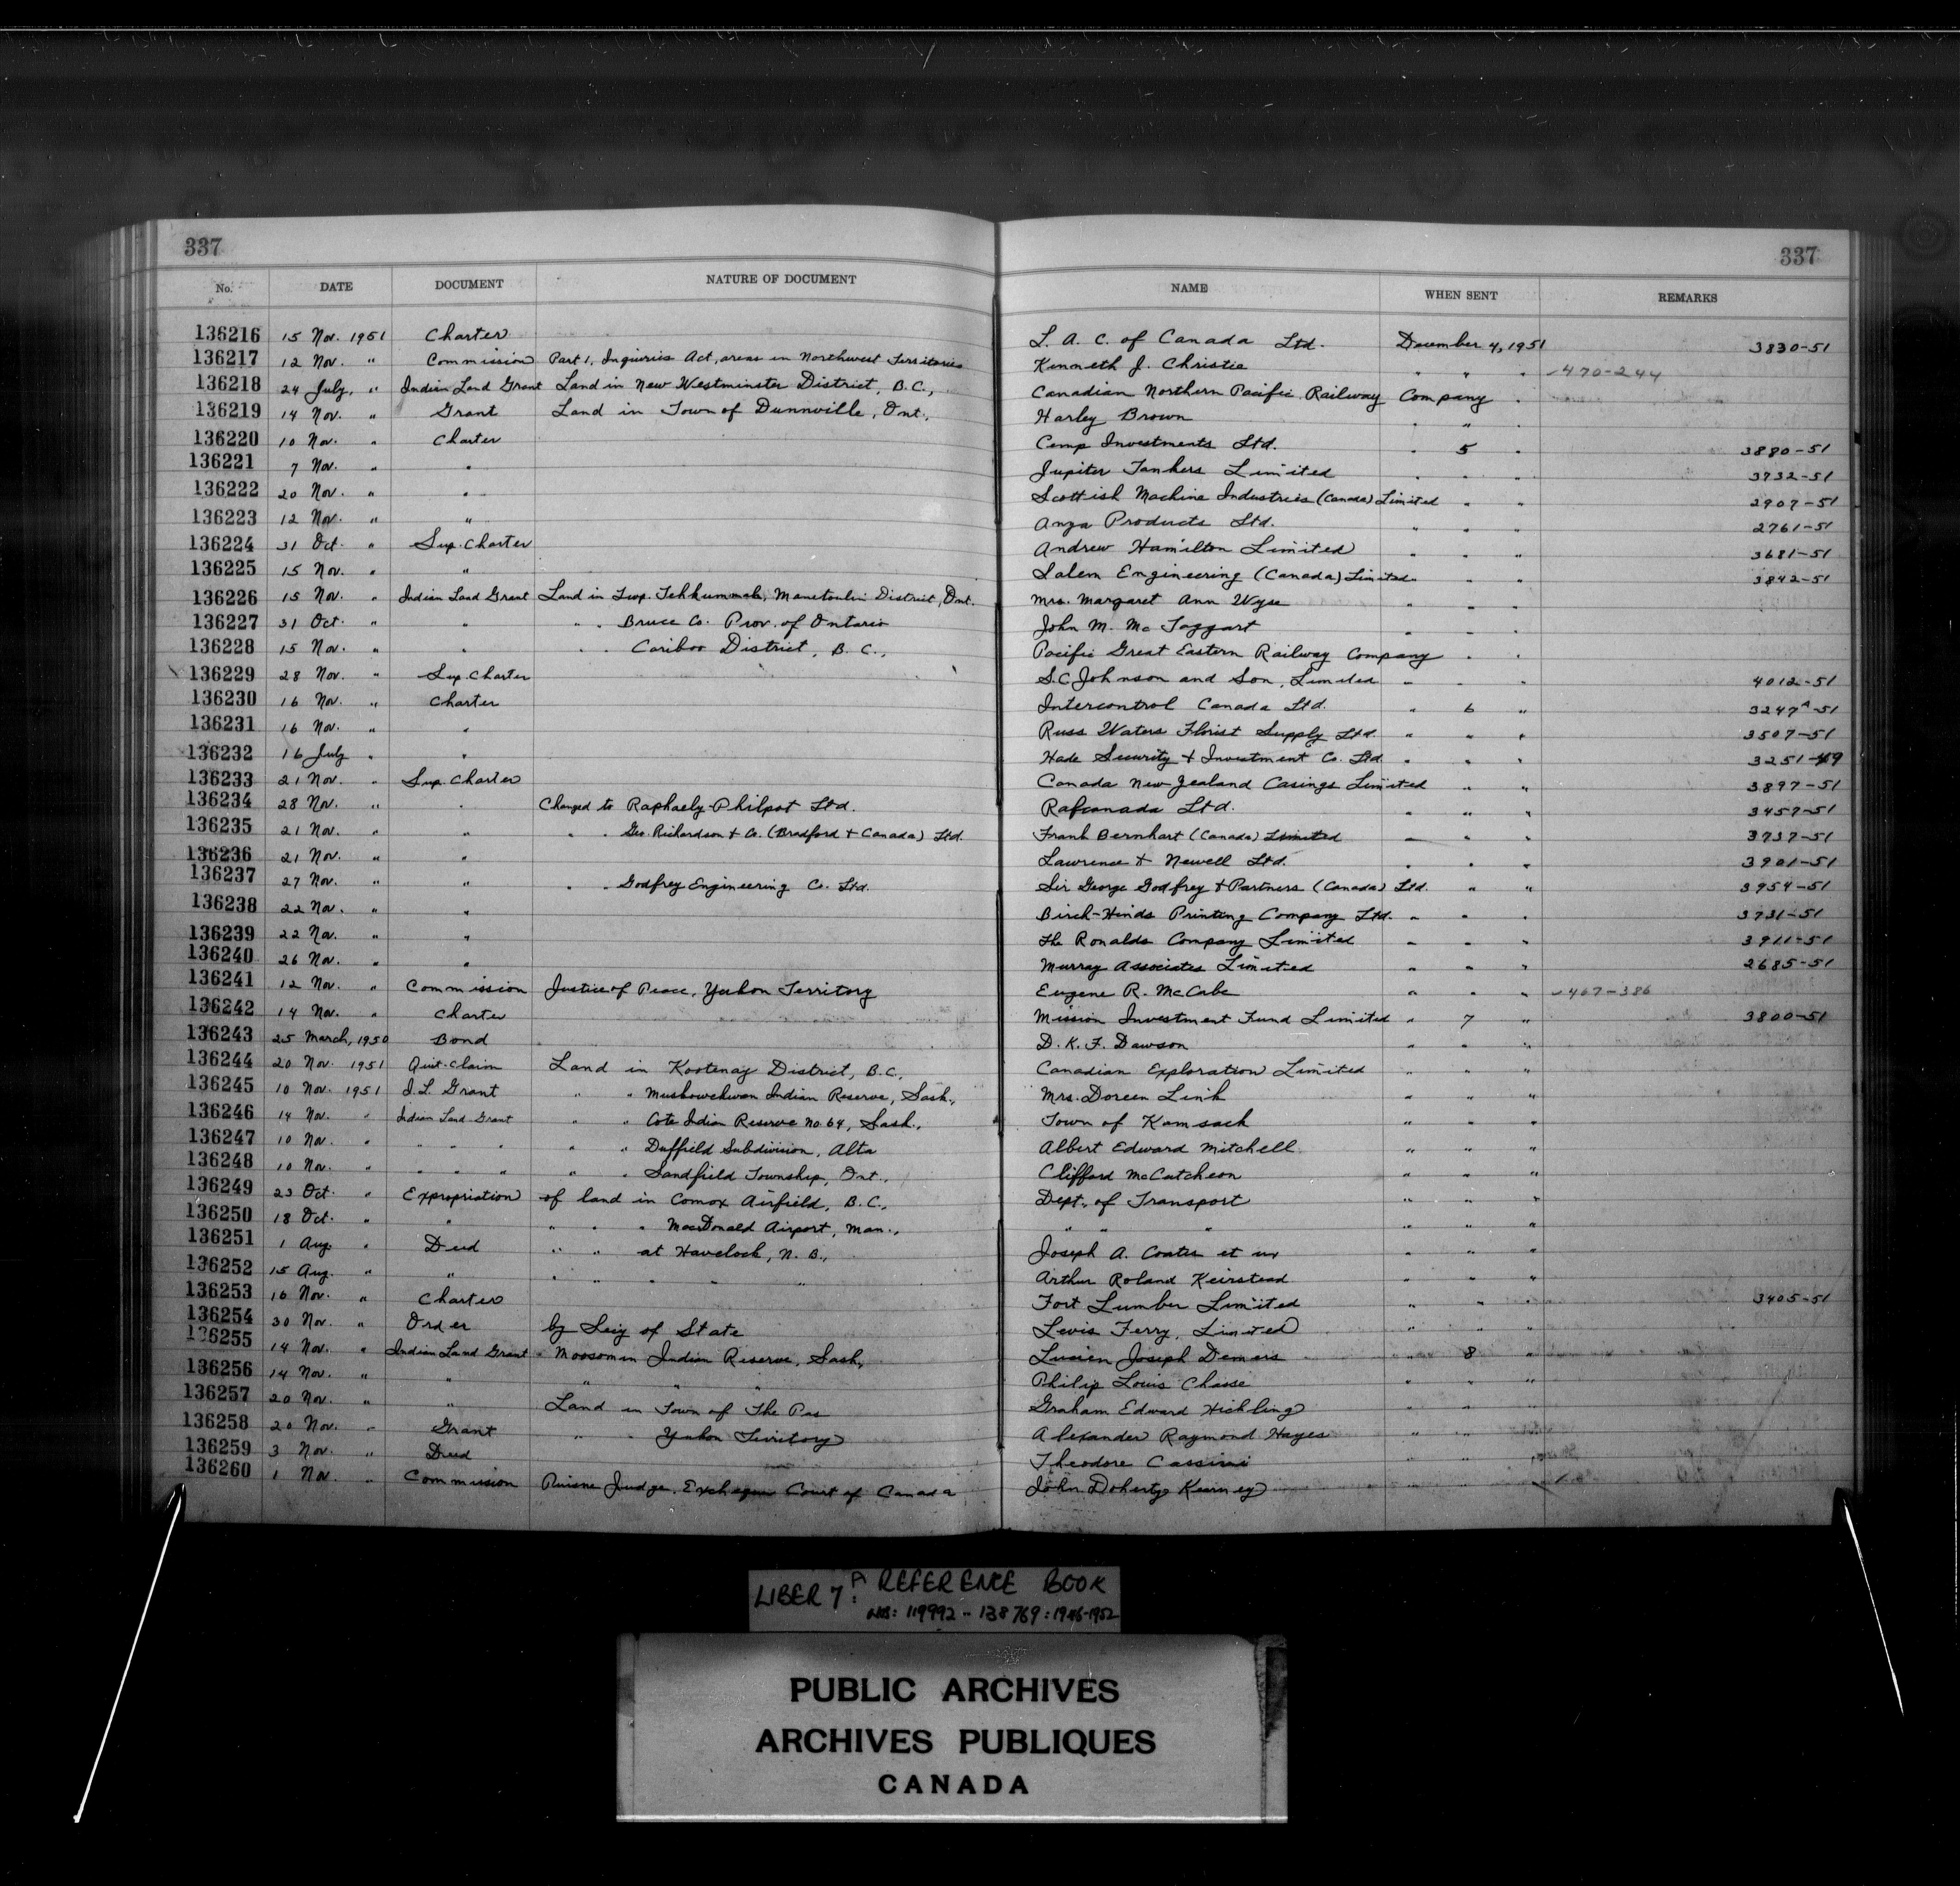 337 337
No. DATE DOCUMENT NATURE OF DOCUMENT NAME WHEN SENT REMARKS
136216 15 Nov. 1951 Charter L. A. C. of Canada Ltd. December 4, 1951 3830-51
136217 12 Nov. " Commission Part 1, Inquiries Act, areas in Northwest Territories Kenneth J. Christie " " " 470-244
136218 24 July, " Indian Land Grant Land in New Westminster District, B.C., Canadian Northern Pacific Railway Company "
136219 14 Nov. " Grant Land in Town of Dunnville, Ont., Harley Brown " " "
136220 10 Nov. " Charter Cemp Investments Ltd. " 5 " 3880-51
136221 7 Nov. " " Jupiter Tankers Limited " " " 3732-51
136222 20 Nov. " " Scottish Machine Industries (Canada) Limited " " 2907-51
136223 12 Nov. " " Anga Products Ltd. " " " 2761-51
136224 31 Oct. " Sup. Charter Andrew Hamilton Limited " " " 3681-51
136225 15 Nov. " " Salem Engineering (Canada) Limited " " 3842-51
136226 15 Nov. " Indian Land Grant Land in Twp. Tehkummah, Manitoulin District, Ont. Mrs. Margaret Ann Wyse " " "
136227 31 Oct. " " " " Bruce Co. Prov. of Ontario John M. McTaggart " " "
136228 15 Nov. " " " " Cariboo District, B.C., Pacific Great Eastern Railway Company " "
136229 28 Nov. " Sup. Charter S.C. Johnson and Son, Limited " " " 4012-51
136230 16 Nov. " Charter Intercontrol Canada Ltd. " 6 " 3247A-51
136231 16 Nov. " " Russ Waters Florist Supply Ltd. " " " 3507-51
136232 16 July " " Hade Security & Investment Co. Ltd. " " " 3251-49
136233 21 Nov. " Sup. Charter Canada New Zealand Casings Limited " " 3897-51
136234 28 Nov. " " Changed to Raphaely-Philpot Ltd. Rafcanada Ltd. " " " 3457-51
136235 21 Nov. " " " " Geo. Richardson & Co. (Bradford & Canada) Ltd. Frank Bernhart (Canada) Limited " " " 3737-51
136236 21 Nov. " " Lawrence & Newell Ltd. " " " 3901-51
136237 27 Nov. " " " " Godfrey Engineering Co. Ltd. Sir George Godfrey & Partners (Canada) Ltd. " " 3954-51
136238 22 Nov. " " Birch-Hinds Printing Company Ltd. " " " 3731-51
136239 22 Nov. " " The Ronalds Company Limited " " " 3911-51
136240 26 Nov. " " Murray Associates Limited " " " 2685-51
136241 12 Nov. " Commission Justice of Peace, Yukon Territory Eugene R. McCabe " " " 467-386
136242 14 Nov. " Charter Mission Investment Fund Limited " 7 " 3800-51
136243 25 March, 1950 Bond D. K. F. Dawson " " "
136244 20 Nov. 1951 Quit-Claim Land in Kootenay District, B.C., Canadian Exploration Limited " " "
136245 10 Nov. 1951 I.L. Grant " " Muskowekwan Indian Reserve, Sask., Mrs. Doreen Link " " "
136246 14 Nov. " Indian Land Grant " " Cote Indian Reserve No. 64, Sask., Town of Kamsack " " "
136247 10 Nov. " " " " " " Duffield Subdivision, Alta Albert Edward Mitchell " " "
136248 10 Nov. " " " " " " Sandfield Township, Ont., Clifford McCutcheon " " "
136249 23 Oct. " Expropriation of land in Comox Airfield, B.C., Dept. of Transport " " "
136250 18 Oct. " " " " " MacDonald Airport, Man., " " " " " "
136251 1 Aug. " Deed " " at Havelock, N.B., Joseph A. Coates et ux " " "
136252 15 Aug. " " " " " " " Arthur Roland Keirstead " " "
136253 16 Nov. " Charter Fort Lumber Limited " " " 3405-51
136254 30 Nov. " Order by Secy of State Levis Ferry, Limited " " "
136255 14 Nov. " Indian Land Grant " Moosomin Indian Reserve, Sask., Lucien Joseph Demers " 8 "
136256 14 Nov. " " " " " Philip Louis Chasse " " "
136257 20 Nov. " " Land in Town of The Pas Graham Edward Hickling " "
136258 20 Nov. " Grant " " Yukon Territory Alexander Raymond Hayes " "
136259 3 Nov. " Deed Theodore Cassini
136260 1 Nov. " Commission Puisne Judge, Exchequer Court of Canada John Doherty Kearney
LIBER 7A: REFERENCE BOOK
NOS: 119992 - 138769: 1946-1952
PUBLIC ARCHIVES
ARCHIVES PUBLIQUES
CANADA